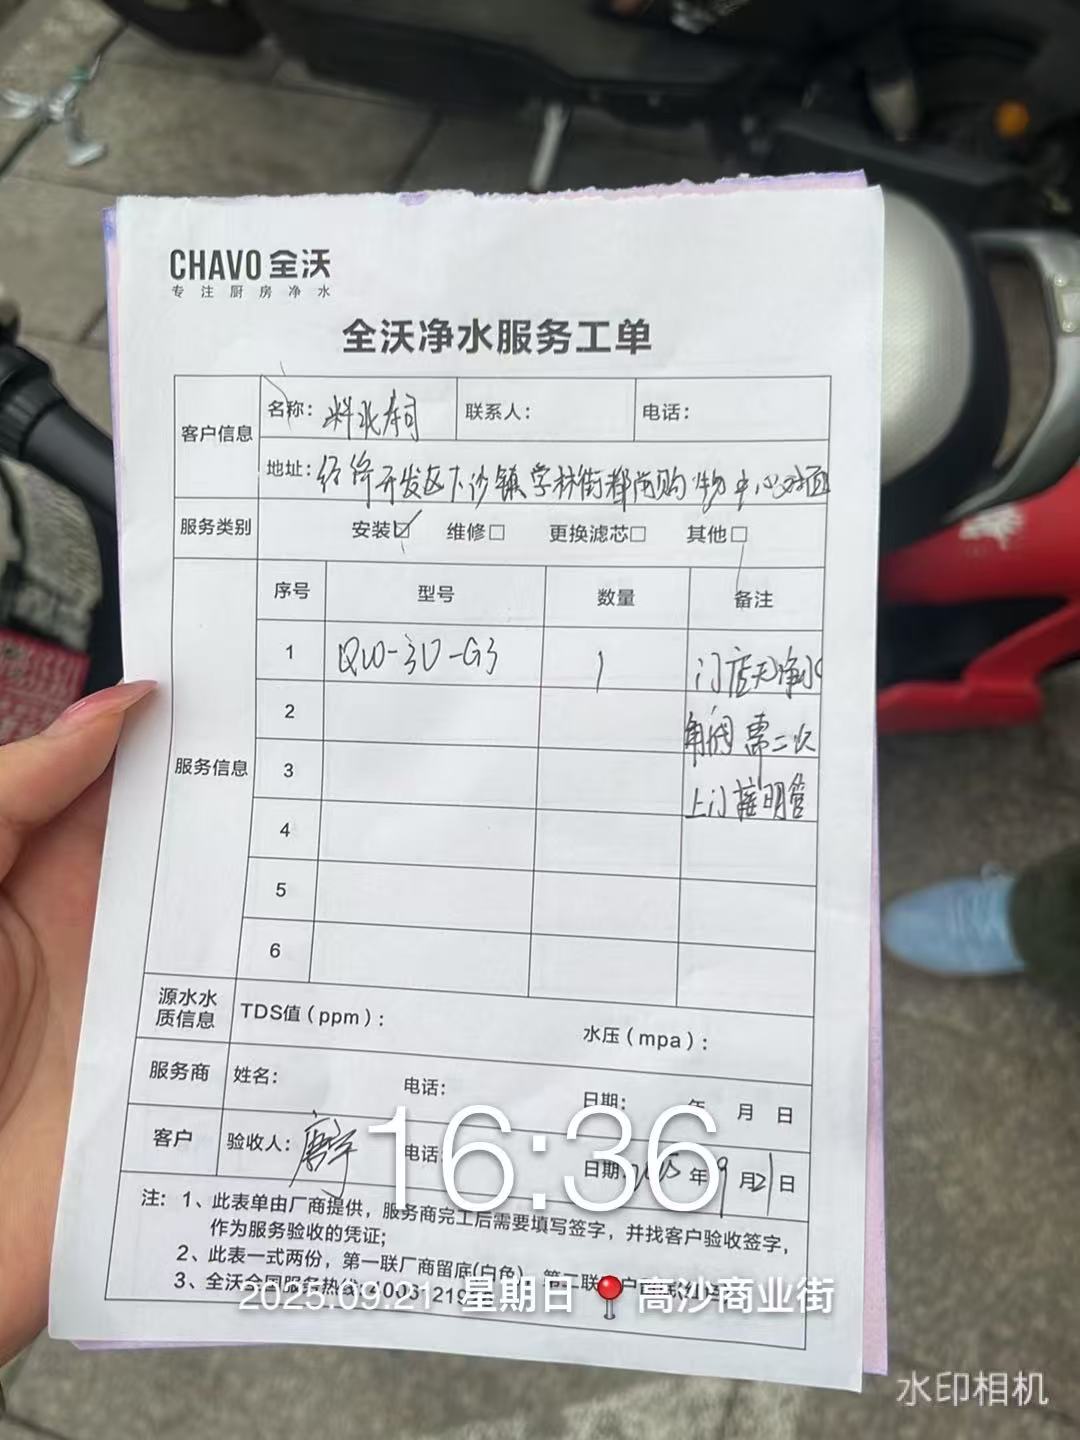 CHAVO 全沃
专注厨房净水
全沃净水服务工单
客户信息
名称：
寿司
联系人：
电话：
地址：经济开发区下沙镇学林街都尚购物中心对面
服务类别
安装☑ 维修□ 更换滤芯□ 其他□
服务信息
序号 型号 数量 备注
1 QW-3U-G3 1 门店无净水
2 角阀 需二次
3 上门接明管
4
5
6
源水水质信息
TDS值（ppm）： 水压（mpa）：
服务商 姓名： 电话： 日期： 年 月 日
客户 验收人： 电话： 日期：2025年9月21日
16:36
注：1、此表单由厂商提供，服务商完工后需要填写签字，并找客户验收签字，
作为服务验收的凭证；
2、此表一式两份，第一联厂商留底(白色)，第二联
3、全沃全国服务热线：
2025.09.21 星期日 高沙商业街
水印相机